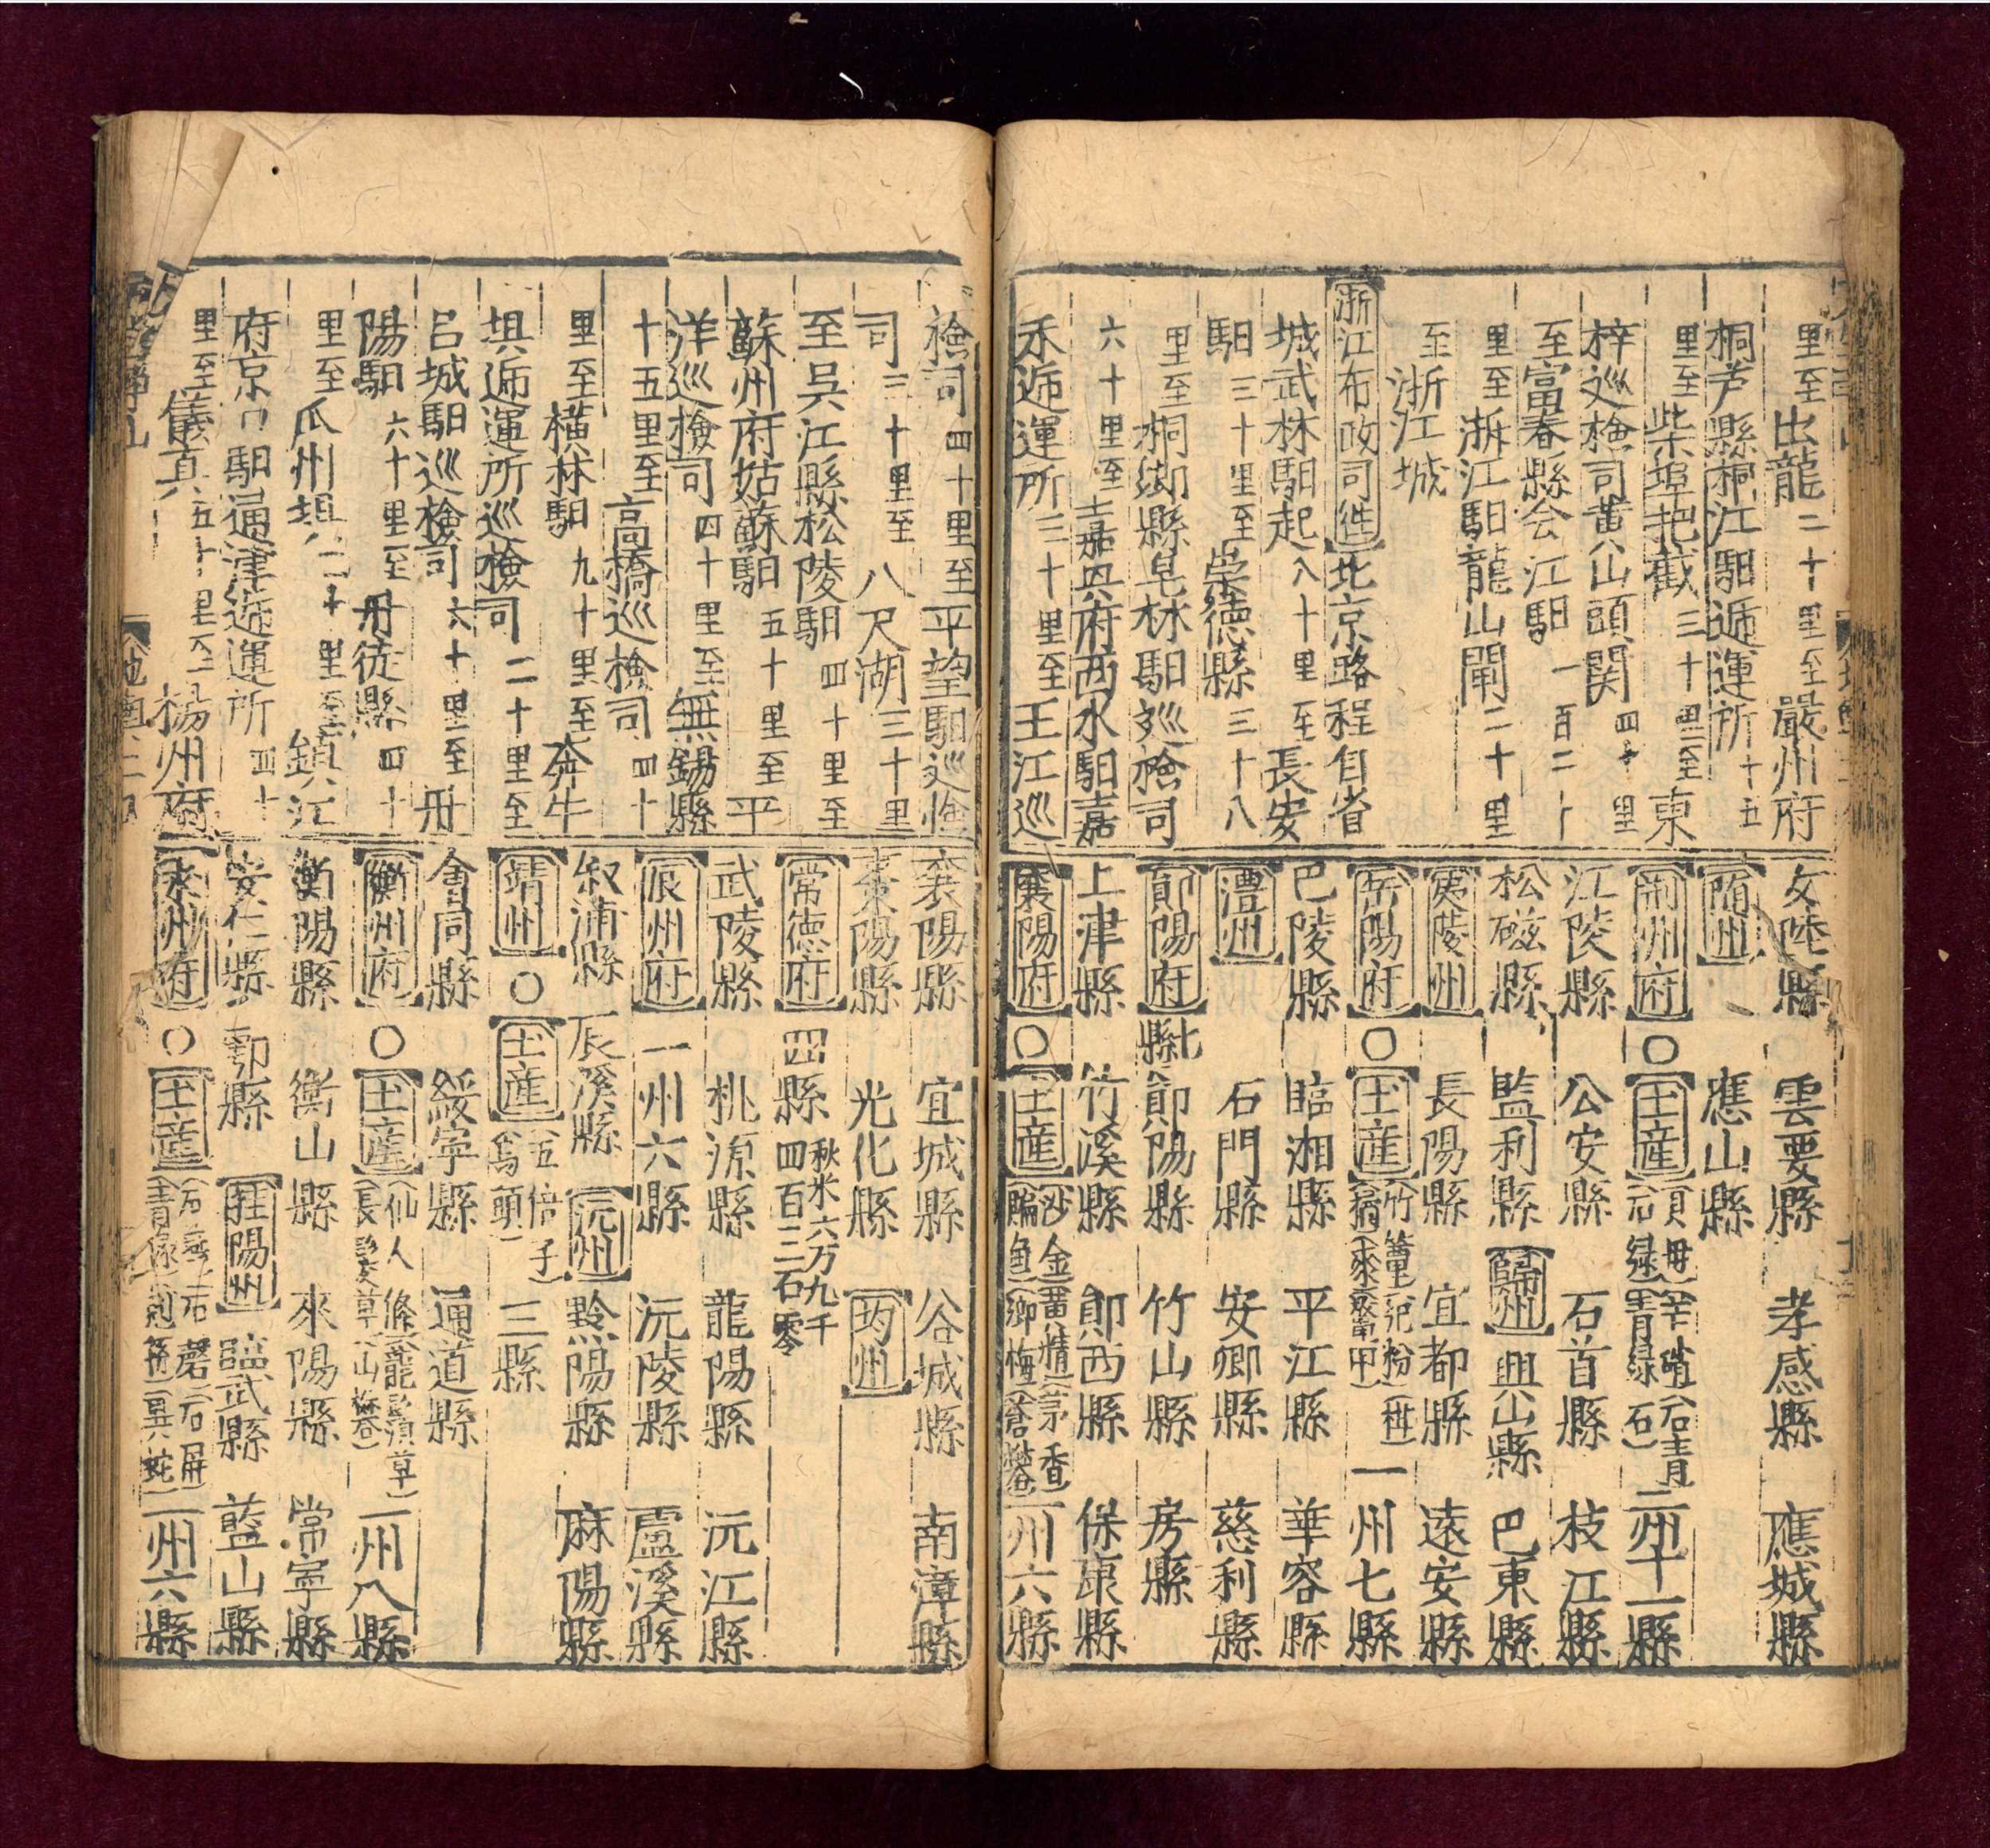 里至出龍二十里至嚴州府
桐芦縣桐江馹逓運所十五
里至柴埠把截三十里至東
梓巡檢司黄山頭関四十里
至富春縣会江馹一百二十
里至浙江馹龍山閘二十里
至浙江城
浙江布政司徃北京路程自省
城武林馹起八十里至長安
馹三十里至崇德縣三十八
里至桐鄉縣皂林馹巡檢司
六十里至嘉兴府西水馹嘉
禾逓運所三十里至王江巡
安陸縣 雲夢縣 孝感縣 應城縣
隨州 應山縣
荊州府○土産 貝母 芒硝 石青 石緑 青緑石 二州十一縣
江陵縣 公安縣 石首縣 枝江縣
松磁縣 監利縣 歸州 興山縣 巴東縣
夷陵州 長陽縣 宜都縣 遠安縣
岳陽府○土産 竹簟 一州七縣
巴陵縣 臨湘縣 平江縣 華容縣
澧州 石門縣 安鄉縣 慈利縣
鄖陽府 七縣 鄖陽縣 竹山縣 房縣
上津縣 竹溪縣 鄖西縣 保康縣
襄陽府○土産 沙金 黄精 香 魚 一州六縣
檢司四十里至平望馹巡檢
司三十里至八尺湖三十里
至吳江縣松陵馹四十里至
蘇州府姑蘇馹五十里至平
洋巡檢司四十里至無錫縣
十五里至高橋巡檢司四十
里至橫林馹九十里至奔牛
垻逓運所巡檢司二十里至
呂城馹巡檢司六十里至丹
陽馹六十里至丹徒縣四十
里至瓜州垻二十里至鎮江
府京口馹通津逓運所四十
里至儀真五十里至揚州府
襄陽縣 宜城縣 谷城縣 南漳縣
棗陽縣 光化縣 均州
常德府 四縣 秋米六万九千四百三石零
武陵縣 桃源縣 龍陽縣 沅江縣
辰州府 一州六縣 沅陵縣 盧溪縣
溆浦縣 辰溪縣 沅州 黔陽縣 麻陽縣
靖州○土産 五倍子 烏頭 三縣
會同縣 綏寧縣 通道縣
衡州府○土産 仙人絛 龍鬚草 長髮草 山 一州八縣
衡陽縣 衡山縣 來陽縣 常寧縣
安仁縣 酃縣 桂陽州 臨武縣 藍山縣
永州府○土産 石燕 石磬 石屏 異蛇 一州六縣